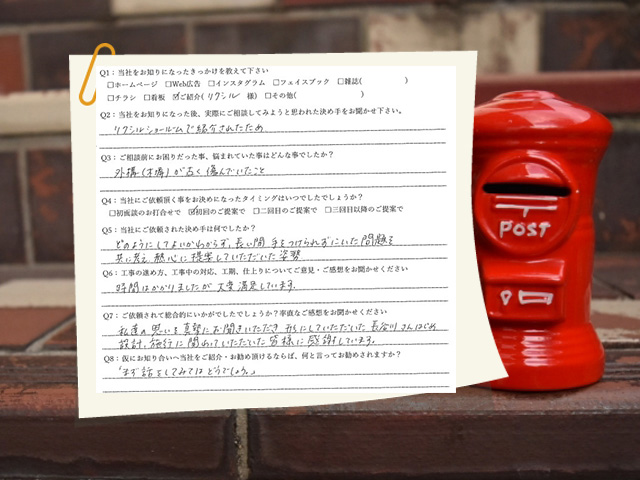 Q1：当社をお知りになったきっかけを教えて下さい
□ホームページ □Web広告 □インスタグラム □フェイスブック □雑誌( )
□チラシ □看板 ☑ご紹介( リクシル 様) □その他( )
Q2：当社をお知りになった後、実際にご相談してみようと思われた決め手をお聞かせ下さい。
リクシルショールームで紹介されたため
Q3：ご相談前にお困りだった事、悩まれていた事はどんな事でしたか？
外構(木塀)が古く傷んでいたこと
Q4：当社にご依頼頂く事をお決めになったタイミングはいつでしたでしょうか？
□初面談のお打合せで ☑初回のご提案で □二回目のご提案で □三回目以降のご提案で
Q5：当社にご依頼された決め手は何でしたか？
どのようにしてよいかわからず、長い間 手をつけられずにいた問題を
共に考え 熱心に提案していただいた姿勢
Q6：工事の進め方、工事中の対応、工期、仕上りについてご意見・ご感想をお聞かせください
時間はかかりましたが 大変満足しています。
Q7：ご依頼されて総合的にいかがでしたでしょうか？率直なご感想をお聞かせください
私達の思いを真摯にお聞きいただき 形にしていただいた長谷川さんはじめ
設計、施行に関わっていただいた皆様に感謝しています。
Q8：仮にお知り合いへ当社をご紹介・お勧め頂けるならば、何と言ってお勧めされますか？
「まず話をしてみてはどうでしょう。」
POST